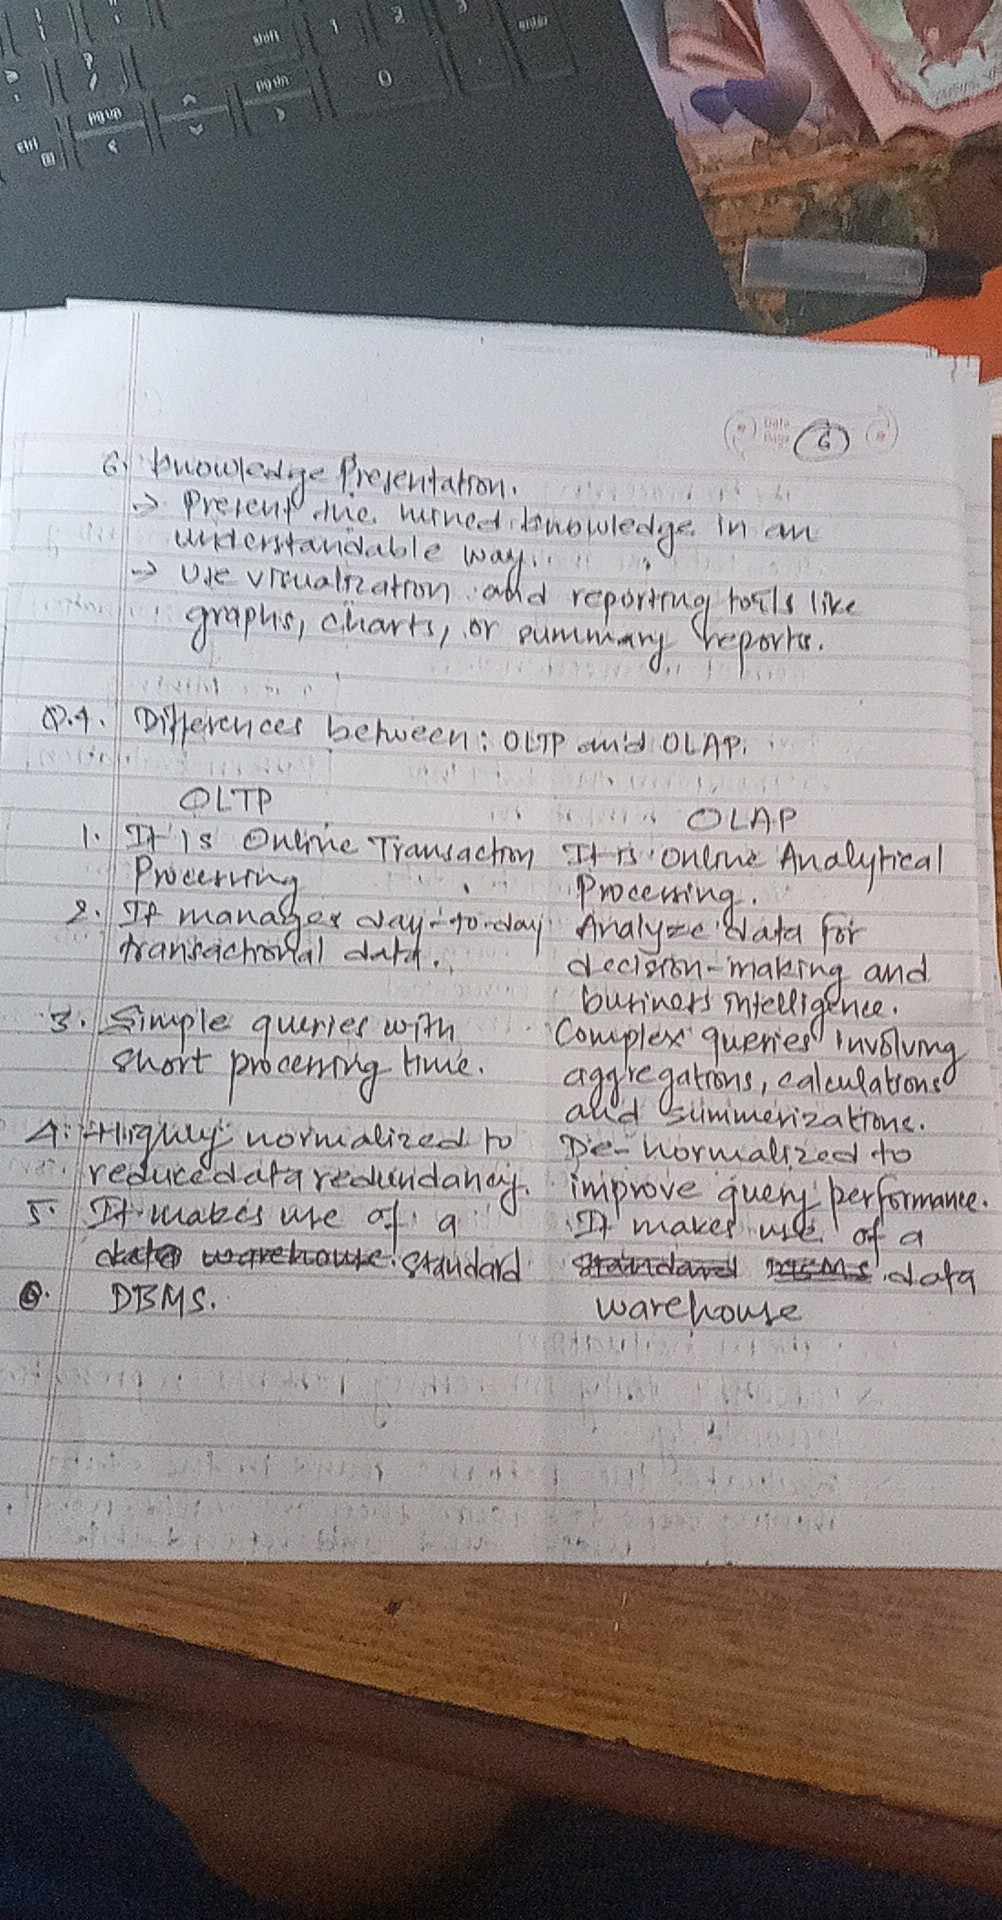 shift
1
2
3
enter
?
/
pg up
pg dn
0
ctrl
Date
Page
6
6. Knowledge Presentation.
→ Present the mined knowledge in an
understandable way.
→ Use visualization and reporting tools like
graphs, charts, or summary reports.
Q.4. Differences between: OLTP and OLAP.
OLTP
OLAP
1. It is Online Transaction
Processing
It is Online Analytical
Processing.
2. It manages day-to-day
transactional data.
Analyze data for
decision-making and
business intelligence.
3. Simple queries with
short processing time.
Complex queries involving
aggregations, calculations
and summerizations.
4. Highly normalized to
reduce data redundancy.
De-normalized to
improve query performance.
5. It makes use of a
data warehouse. standard
DBMS.
It makes use of a
standard DBMS data
warehouse
6.